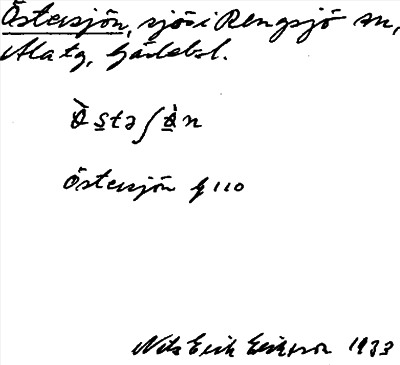 Östersjön, sjö i Rengsjö sn,
Ala tg, Gävlebl.
Östersjön G 110
Nils Erik Eriksson 1933